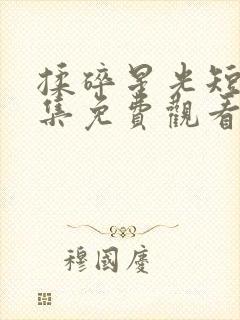 揉碎星光短
集免費觀看
穆國慶